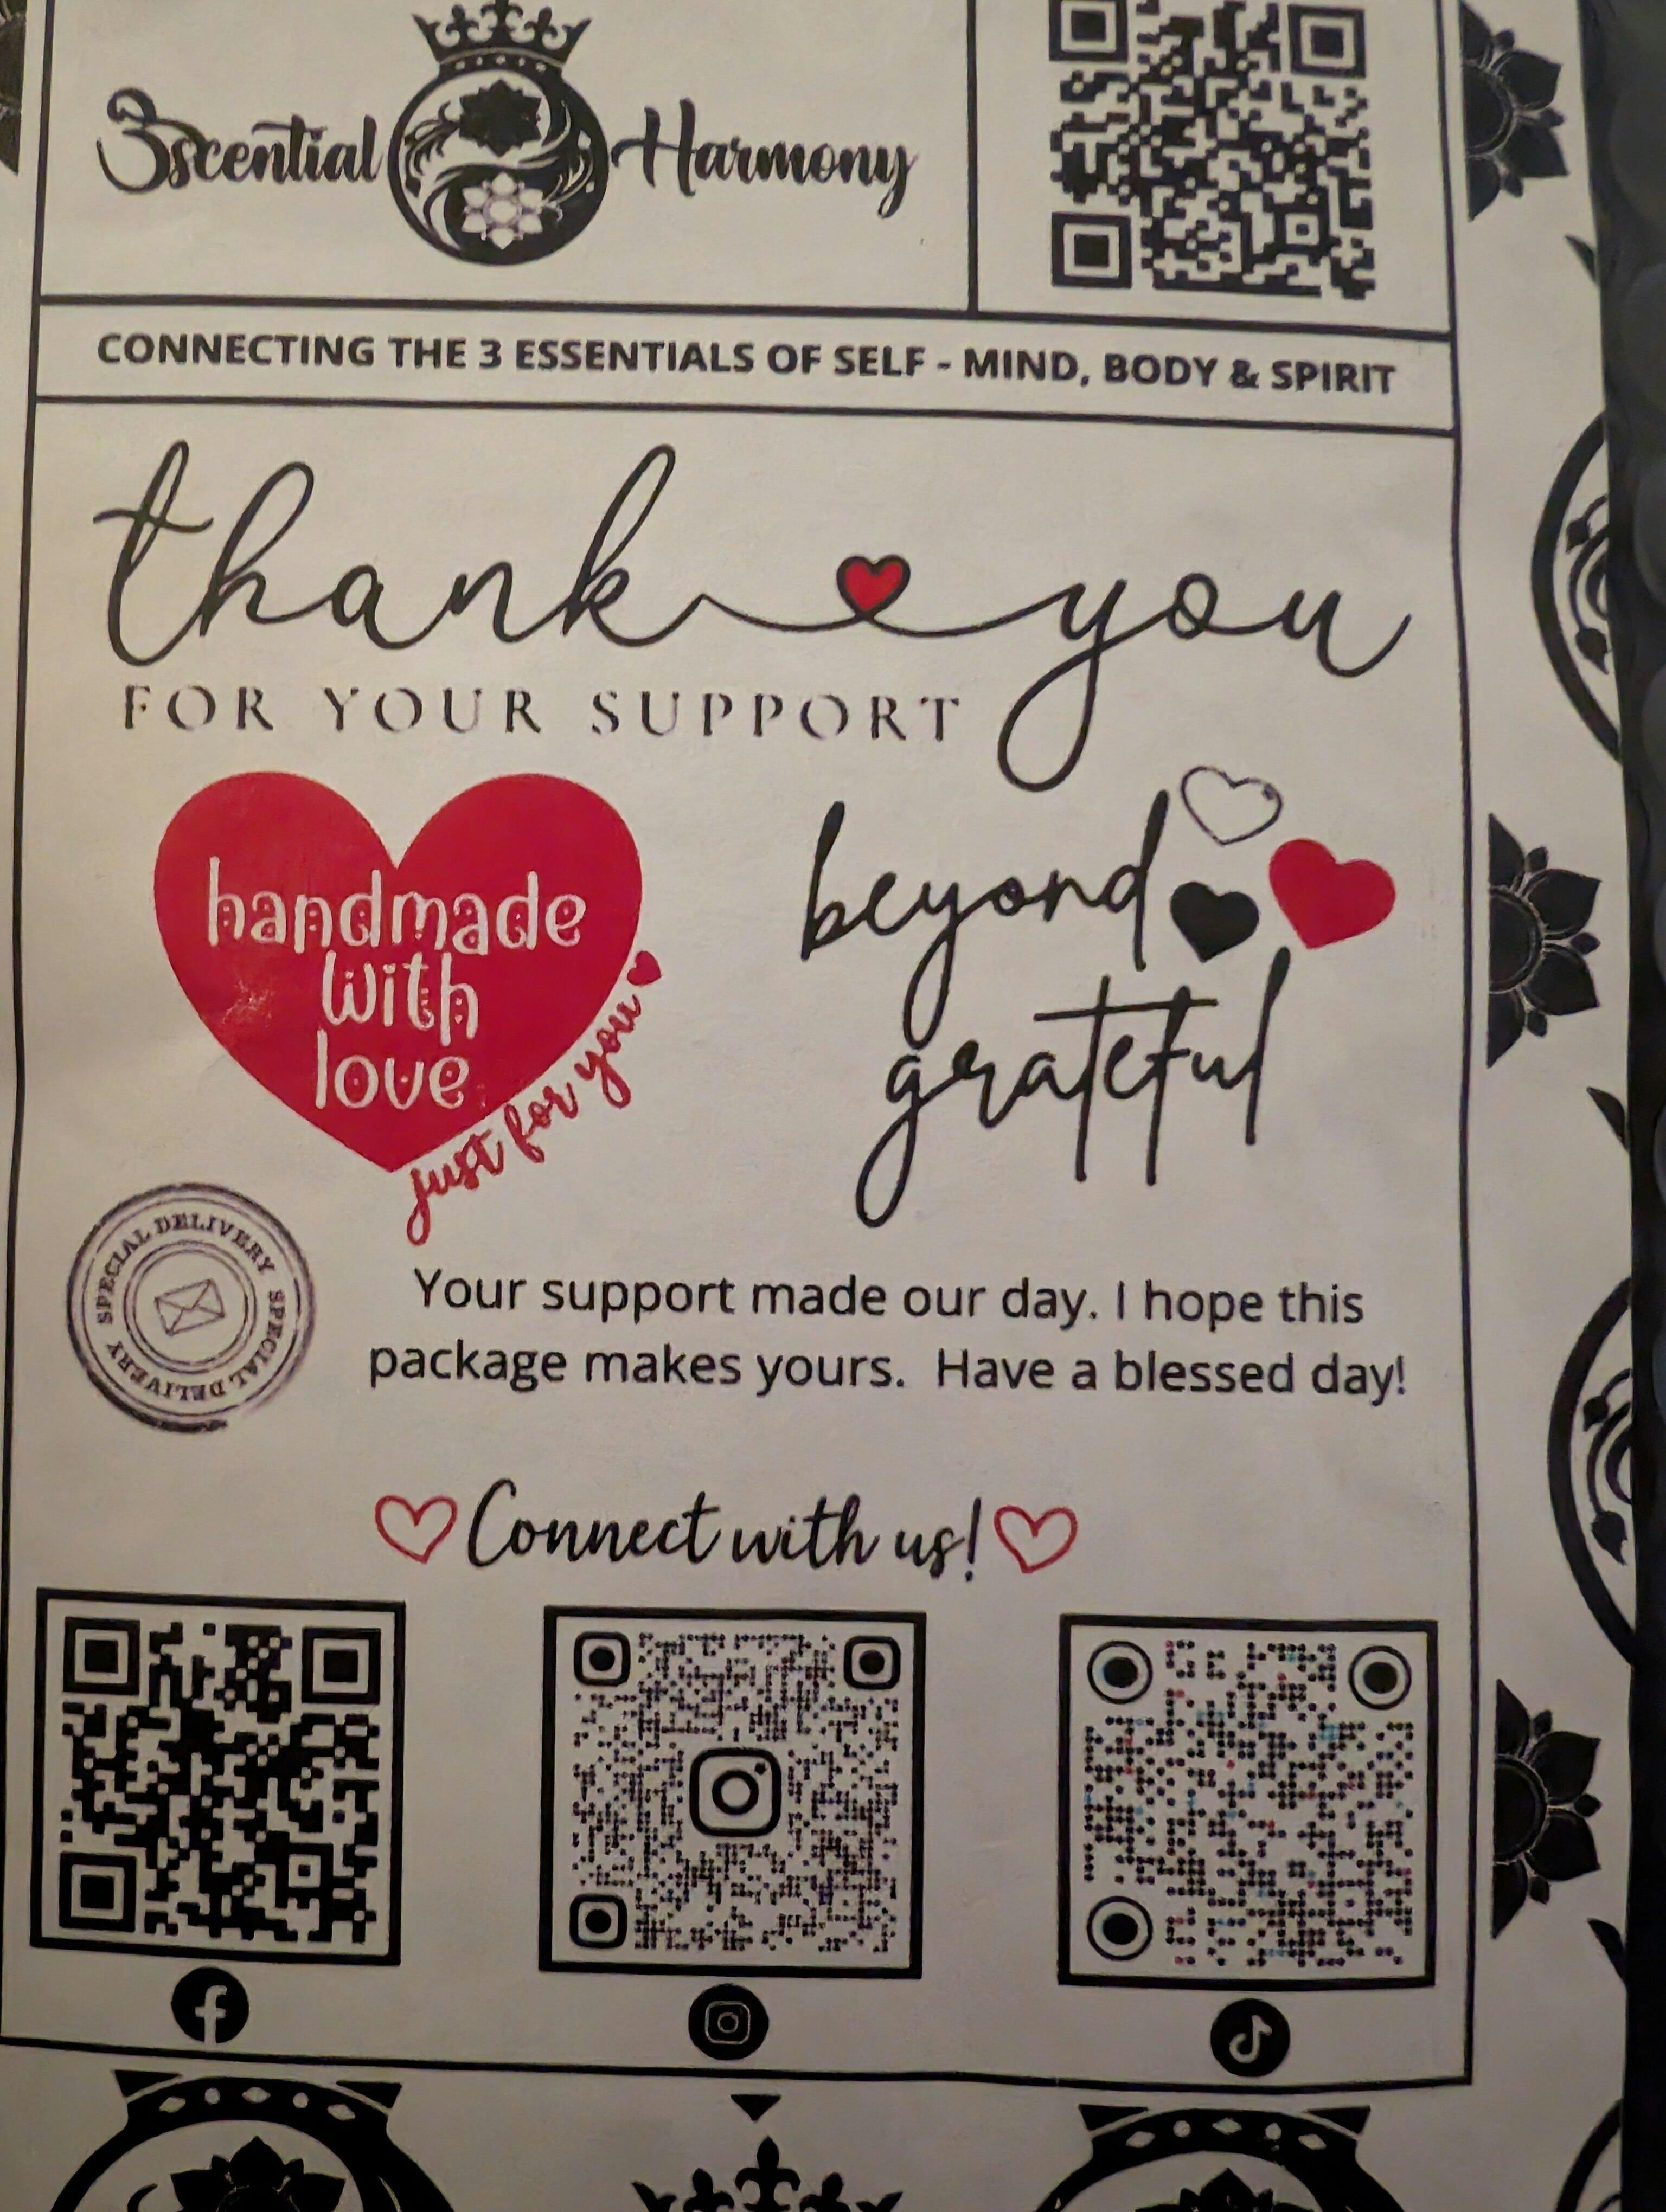 3scential Harmony
CONNECTING THE 3 ESSENTIALS OF SELF - MIND, BODY & SPIRIT
thank you
FOR YOUR SUPPORT
handmade
with
love
just for you
beyond
grateful
SPECIAL DELIVERY SPECIAL DELIVERY
Your support made our day. I hope this
package makes yours. Have a blessed day!
Connect with us!